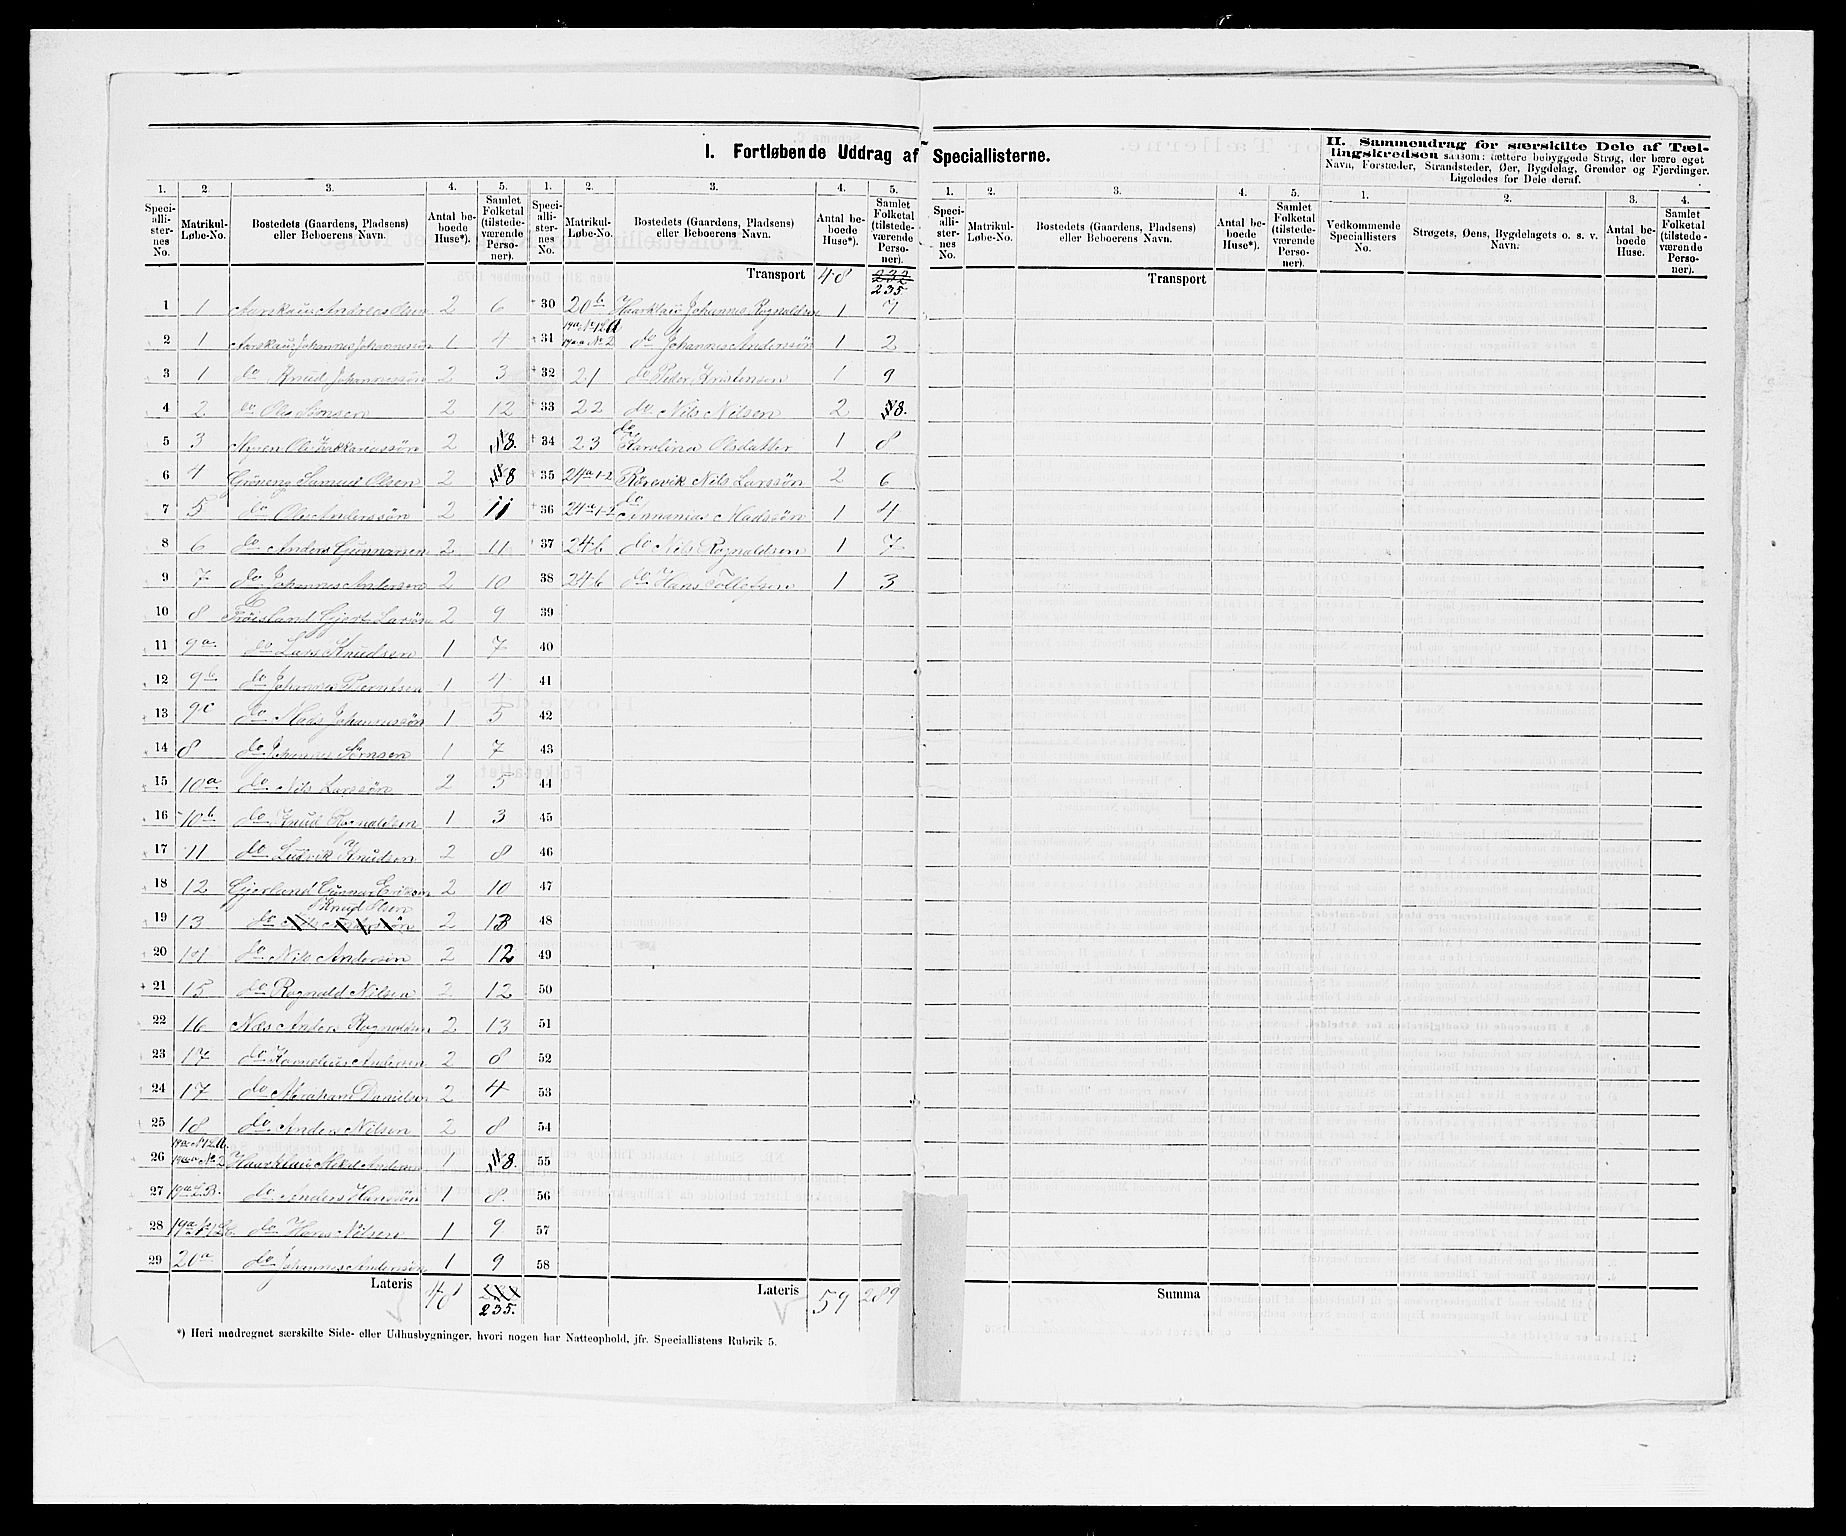 I. Fortløbende Uddrag af Speciallisterne.
II. Sammendrag for særskilte Dele af Tællingskredsen saasom: tættere bebyggede Strøg, der bære eget
Navn, Forstæder, Strandsteder, Øer, Bygdelag, Grender og Fjerdinger.
Ligeledes for Dele deraf.
1. 2. 3. 4. 5. 1. 2. 3. 4. 5. 1. 2. 3. 4. 5. 1. 2. 3. 4.
Speciallisternes No. Matrikul-Løbe-No. Bostedets (Gaardens, Pladsens) eller Beboerens Navn. Antal beboede Huse*). Samlet Folketal (tilstedeværende Personer).
Speciallisternes No. Matrikul-Løbe-No. Bostedets (Gaardens, Pladsens) eller Beboerens Navn. Antal beboede Huse*). Samlet Folketal (tilstedeværende Personer).
Speciallisternes No. Matrikul-Løbe-No. Bostedets (Gaardens, Pladsens) eller Beboerens Navn. Antal beboede Huse*). Samlet Folketal (tilstedeværende Personer).
Vedkommende Speciallisters No. Strøgets, Øens, Bygdelagets o. s. v. Navn. Antal beboede Huse. Samlet Folketal (tilstedeværende Personer).
Transport 48 232 235.
Transport
1 1 Andreas Olsen 2 6
2 1 Johannes Johannessön 1 4
3 1 do Knud Johannessön 2 3
4 2 do Ole 2 12
5 3 Ole 2 8.
6 4 Samuel Olsen 2 8
7 5 do Ole Anderssön 2 11
8 6 do Anders Gunnarsen 2 11
9 7 do Johannes Andersen 2 10
10 8 Gjert Larsön 2 9
11 9a. do Lars Knudsen 1 7
12 9b do Johannes 1 4
13 9c do Johannessön 1 5
14 8 do Johannes 1 7
15 10a do Nils Larssön 2 5
16 10b do Knud Rognaldsen 1 3
17 11 do Ludvik Knudsen 2 8
18 12 Gjerland Gunnar Eriksen 2 10
19 13 do Knud Olsen 2 13
20 14 do Nils Andersön 2 12
21 15 do Rognald Nilsen 2 12
22 16 Næs Anders Rognaldsen 2 13
23 17 do Kornelius Andersen 2 8
24 17 do Abraham Danielsen 2 4
25 18 do Anders Nilsen 2 8
26 Haarklau Mikel Andersen 1 8.
27 do Anders Hanssön 1 8.
28 do Hans Nilsen 1 9
29 20a do Johannes Andersön 1 9
Lateris 48 235.
30 20b Haarklau Johannes Rognaldsen 1 7
31 do Johannes Anderssön 1 2
32 21 do Peder Kristensen 1 9
33 22 do Nils Nilsen 2 8.
34 23 do Karolina Olsdatter 1 8
35 24a 1-2 Rörvik Nils Larssön 2 6
36 24a 1-2 do Annanias Madssön 1 4
37 24b do Nils Rognaldsen 1 7
38 24b do Hans Tollefsen 1 3
39
40
41
42
43
44
45
46
47
48
49
50
51
52
53
54
55
56
57
58
Lateris 59 289
Summa
*) Heri medregnet særskilte Side- eller Udhusbygninger, hvori nogen har Natteophold, jfr. Speciallistens Rubrik 5.